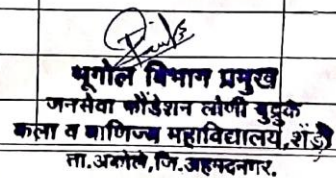 भूगोल विभाग प्रमुख
जनसेवा फौंडेशन लोणी बुद्रुक
कला व वाणिज्य महाविद्यालय, शेंडी
ता.अकोले,जि.अहमदनगर.